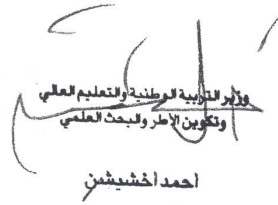 وزير التربية الوطنية والتعليم العالي
وتكوين الأطر والبحث العلمي
احمد اخشيشن